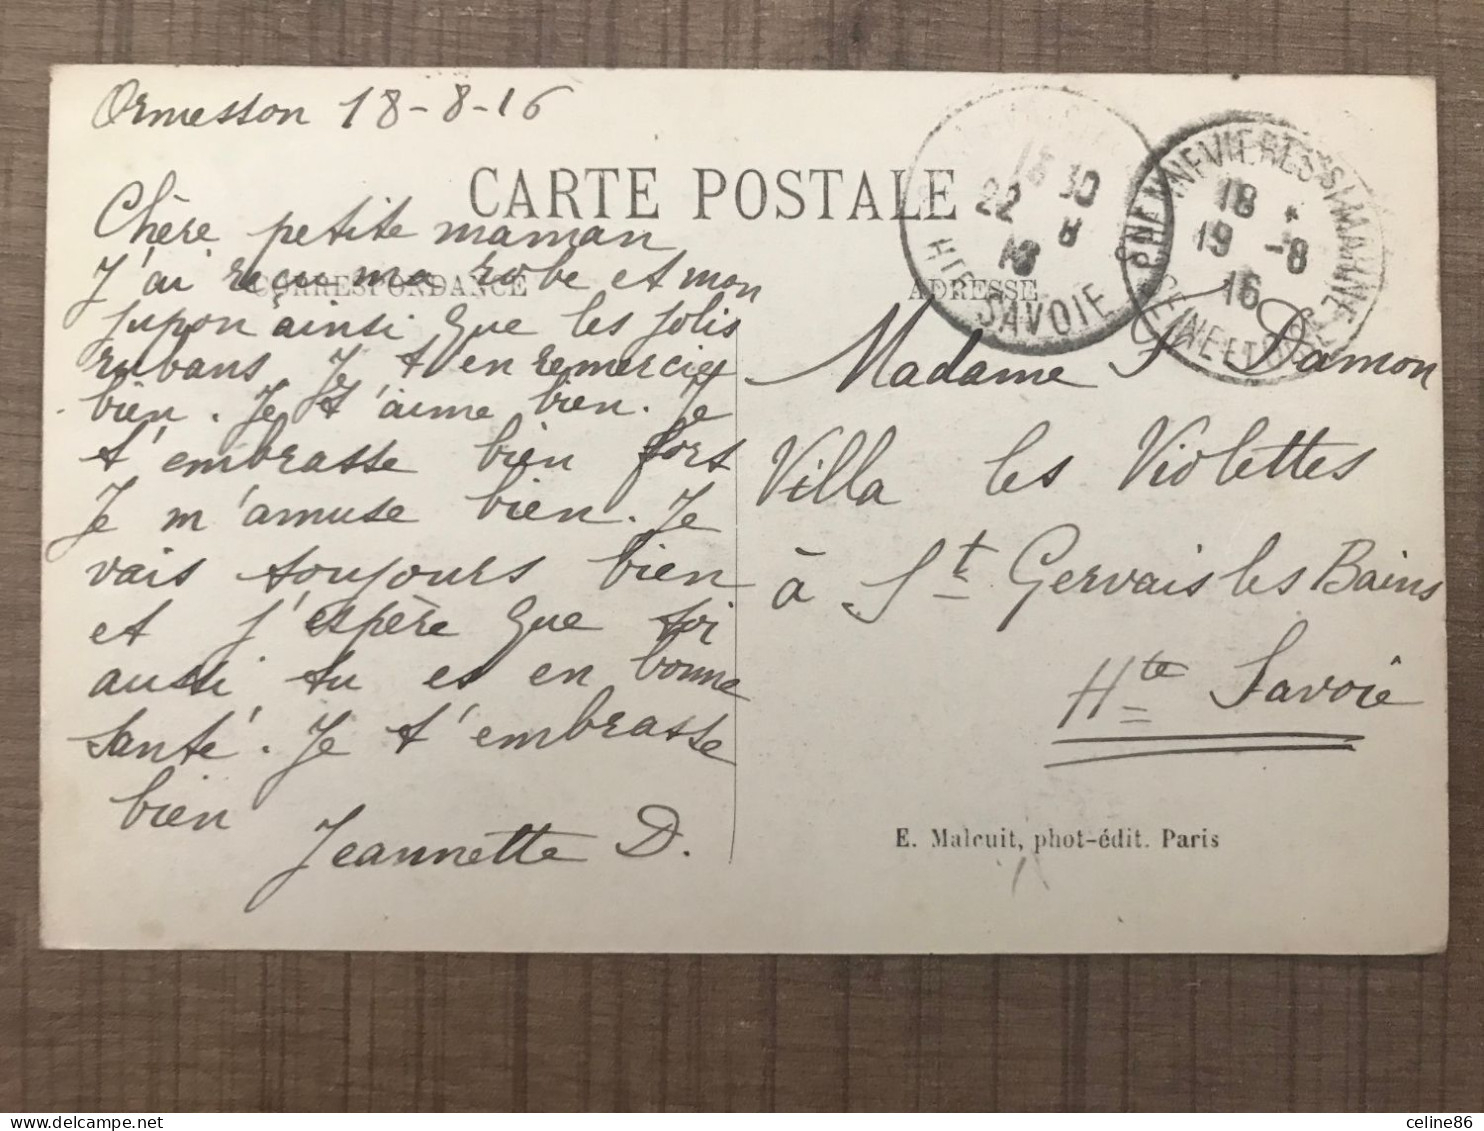 Ormesson 18-8-16
CARTE POSTALE
CORRESPONDANCE
Chère petite maman
J'ai reçu ma robe et mon
jupon ainsi que les jolis
rubans Je t en remercie
bien. Je t'aime bien. Je
t'embrasse bien fort
Je m'amuse bien. Je
vais toujours bien
et j'espère que toi
aussi tu es en bonne
santé. Je t'embrasse
bien
Jeannette D.
22 8
SAVOIE
CHENNEVIERES-S-MARNE
18 *
19 -8
16
SEINE ET OISE
ADRESSE
Madame Damon
Villa les Violettes
à St Gervais les Bains
Hte Savoie
E. Malcuit, phot-édit. Paris
celine86